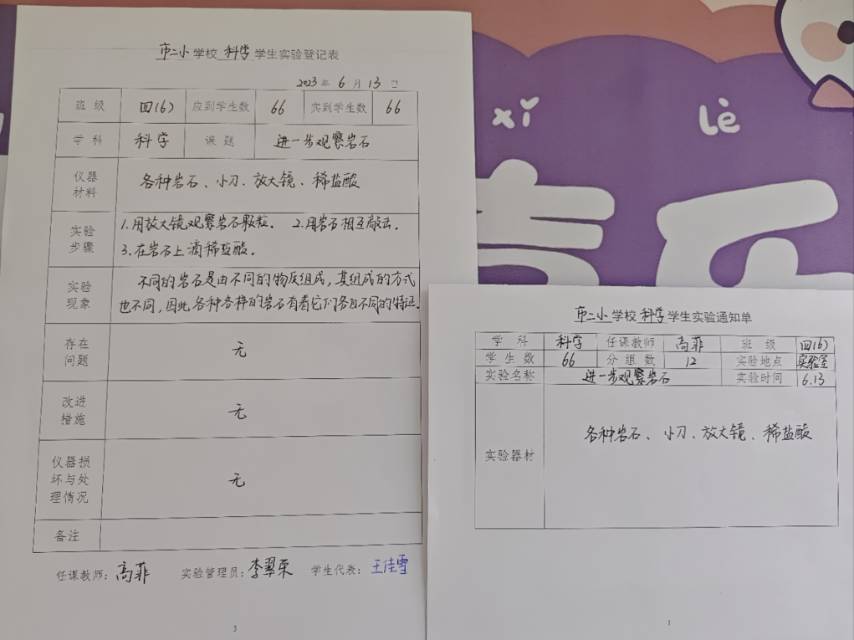 市二小学校 科学 学生实验登记表
2023年 6月 13日
班 级 四(6) 应到学生数 66 实到学生数 66
学 科 科学 课 题 进一步观察岩石
仪器
材料
各种岩石、小刀、放大镜、稀盐酸
实验
步骤
1.用放大镜观察岩石颗粒。 2.用岩石相互敲击。
3.在岩石上滴稀盐酸。
实验
现象
不同的岩石是由不同的物质组成，其组成的方式
也不同，因此各种各样的岩石有着它们各自不同的特征。
存在
问题
无
改进
措施
无
仪器损
坏与处
理情况
无
备注
任课教师：高菲 实验管理员：李翠荣 学生代表：王佳雪
3
xǐ
lè
市二小学校 科学 学生实验通知单
学 科 科学 任课教师 高菲 班 级 四(6)
学 生 数 66 分 组 数 12 实验地点 实验室
实验名称 进一步观察岩石 实验时间 6.13
实验器材
各种岩石、小刀、放大镜、稀盐酸
1